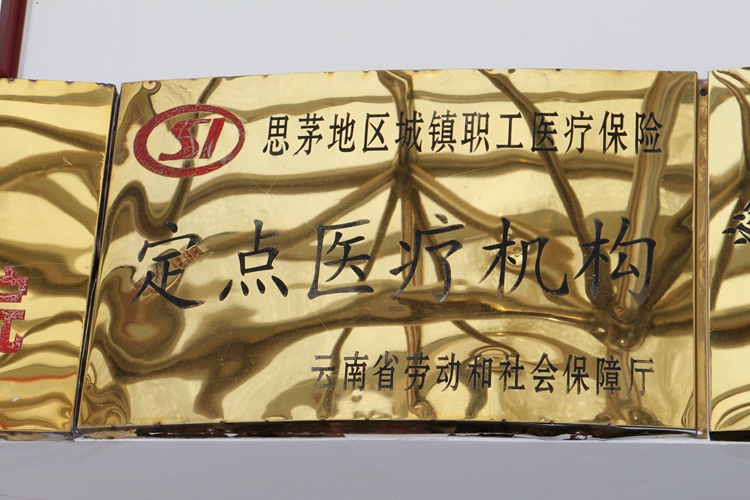 SI
思茅地区城镇职工医疗保险
定点医疗机构
云南省劳动和社会保障厅